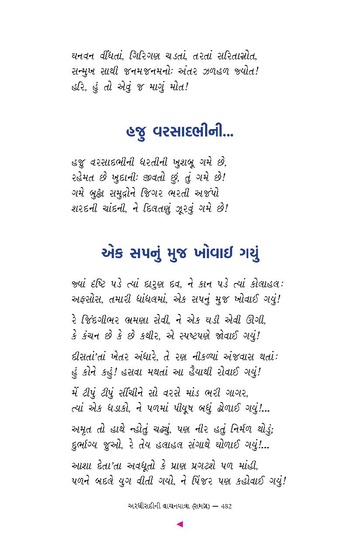 ઘનવન વીંધતાં, ગિરિગણ ચડતાં, તરતાં સરિતાસ્રોત,
સન્મુખ સાથી જનમજનમનોઃ અંતર ઝળહળ જ્યોત!
હરિ, હું તો એવું જ માગું મોત!
હજુ વરસાદભીની...
હજુ વરસાદભીની ધરતીની ખુશબૂ ગમે છે,
રહેમત છે ખુદાનીઃ જીવતો છું, તું ગમે છે!
ગમે બુઢ્ઢા સમુદ્રોને જિગર ભરતી અજંપો
શરદની ચાંદની, ને દિલતણું ઝૂરવું ગમે છે!
એક સપનું મુજ ખોવાઇ ગયું
જ્યાં દૃષ્ટિ પડે ત્યાં દારુણ દવ, ને કાન પડે ત્યાં કોલાહલઃ
અફસોસ, તમારી ધાંધલમાં, એક સપનું મુજ ખોવાઈ ગયું!
રે જિંદગીભર ભ્રમણા સેવી, ને એક ઘડી એવી ઊગી,
કે કંચન છે કે છે કથીર, એ સ્પષ્ટપણે જોવાઈ ગયું!
દીસતાં'તાં ખેતર અંધારે, તે રણ નીકળ્યાં અંજવાસ થતાંઃ
હું કોને કહું! હસવા મથતાં આ હૈયાથી રોવાઈ ગયું!
મેં ટીપું ટીપું સીંચીને સો વરસે માંડ ભરી ગાગર,
ત્યાં એક ધડાકો, ને પળમાં પીયૂષ બધું ઢોળાઈ ગયું!...
અમૃત તો હાથે ન્હોતું ચઢ્યું, પણ નીર હતું નિર્મળ થોડું;
દુર્ભાગ્ય જુઓ, રે તેય હલાહલ સંગાથે ઘોળાઈ ગયું!...
આશા દેતા'તા અવધૂતો કે પ્રાણ પ્રગટશે પળ માંહી,
પળને બદલે યુગ વીતી ગયો, ને પિંજર પણ કહોવાઈ ગયું!
અરધીસદીની વાચનયાત્રા (સમગ્ર) — 482